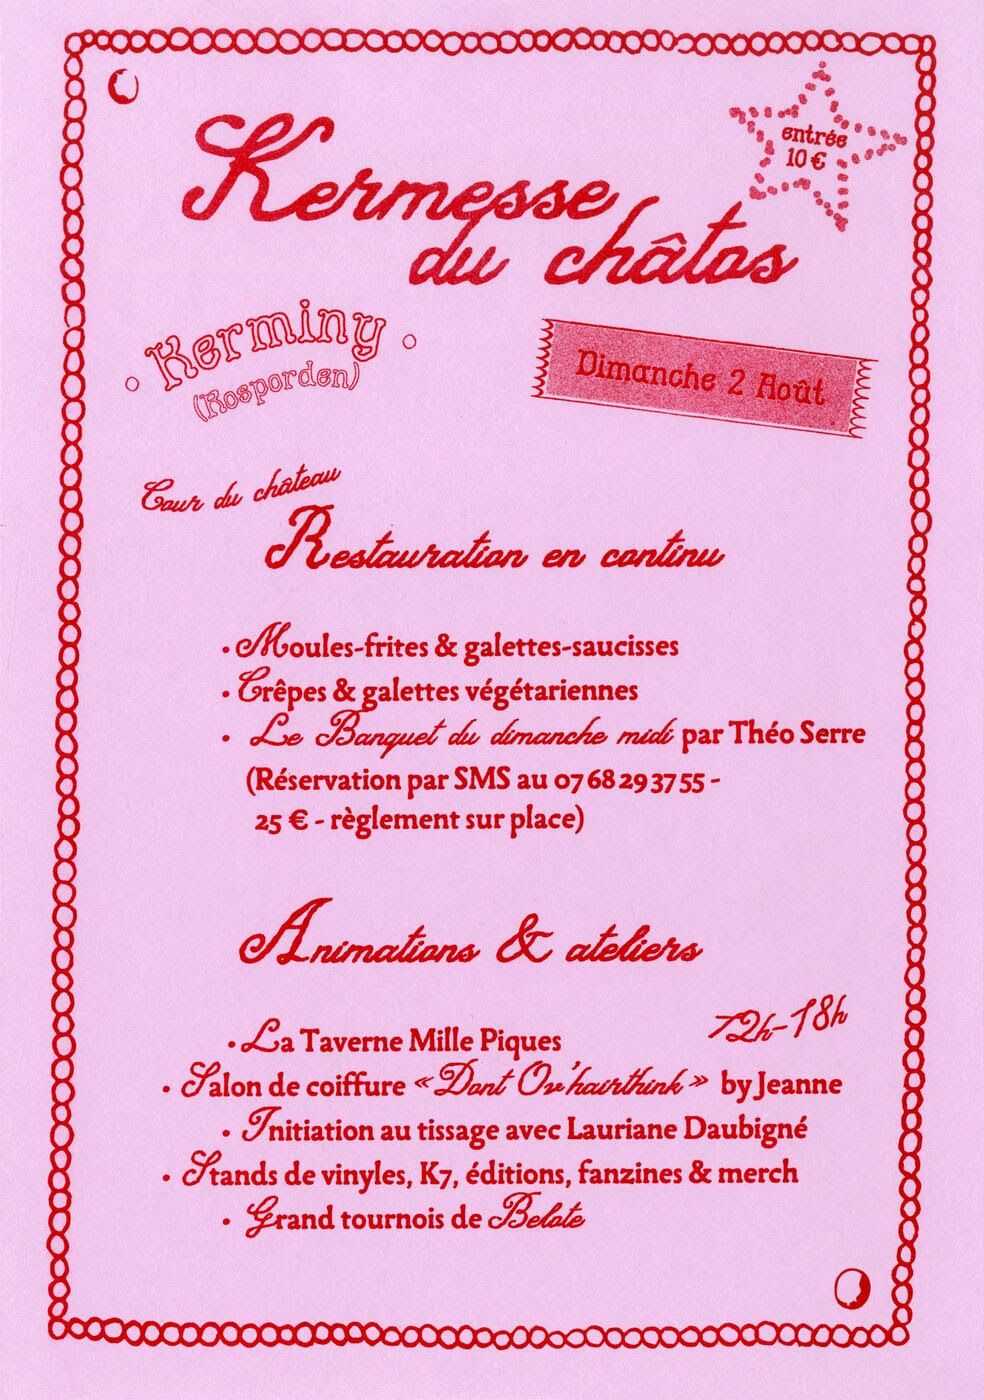 entrée
10 €
Kermesse
du châtos
Kerminy
(Rosporden)
Dimanche 2 Août
Cour du château
Restauration en continu
• Moules-frites & galettes-saucisses
• Crêpes & galettes végétariennes
• Le Banquet du dimanche midi par Théo Serre
(Réservation par SMS au 07 68 29 37 55 -
25 € - règlement sur place)
Animations & ateliers
12h-18h
• La Taverne Mille Piques
• Salon de coiffure « Dont Ov'hairthink » by Jeanne
• Initiation au tissage avec Lauriane Daubigné
• Stands de vinyles, K7, éditions, fanzines & merch
• Grand tournois de Belote